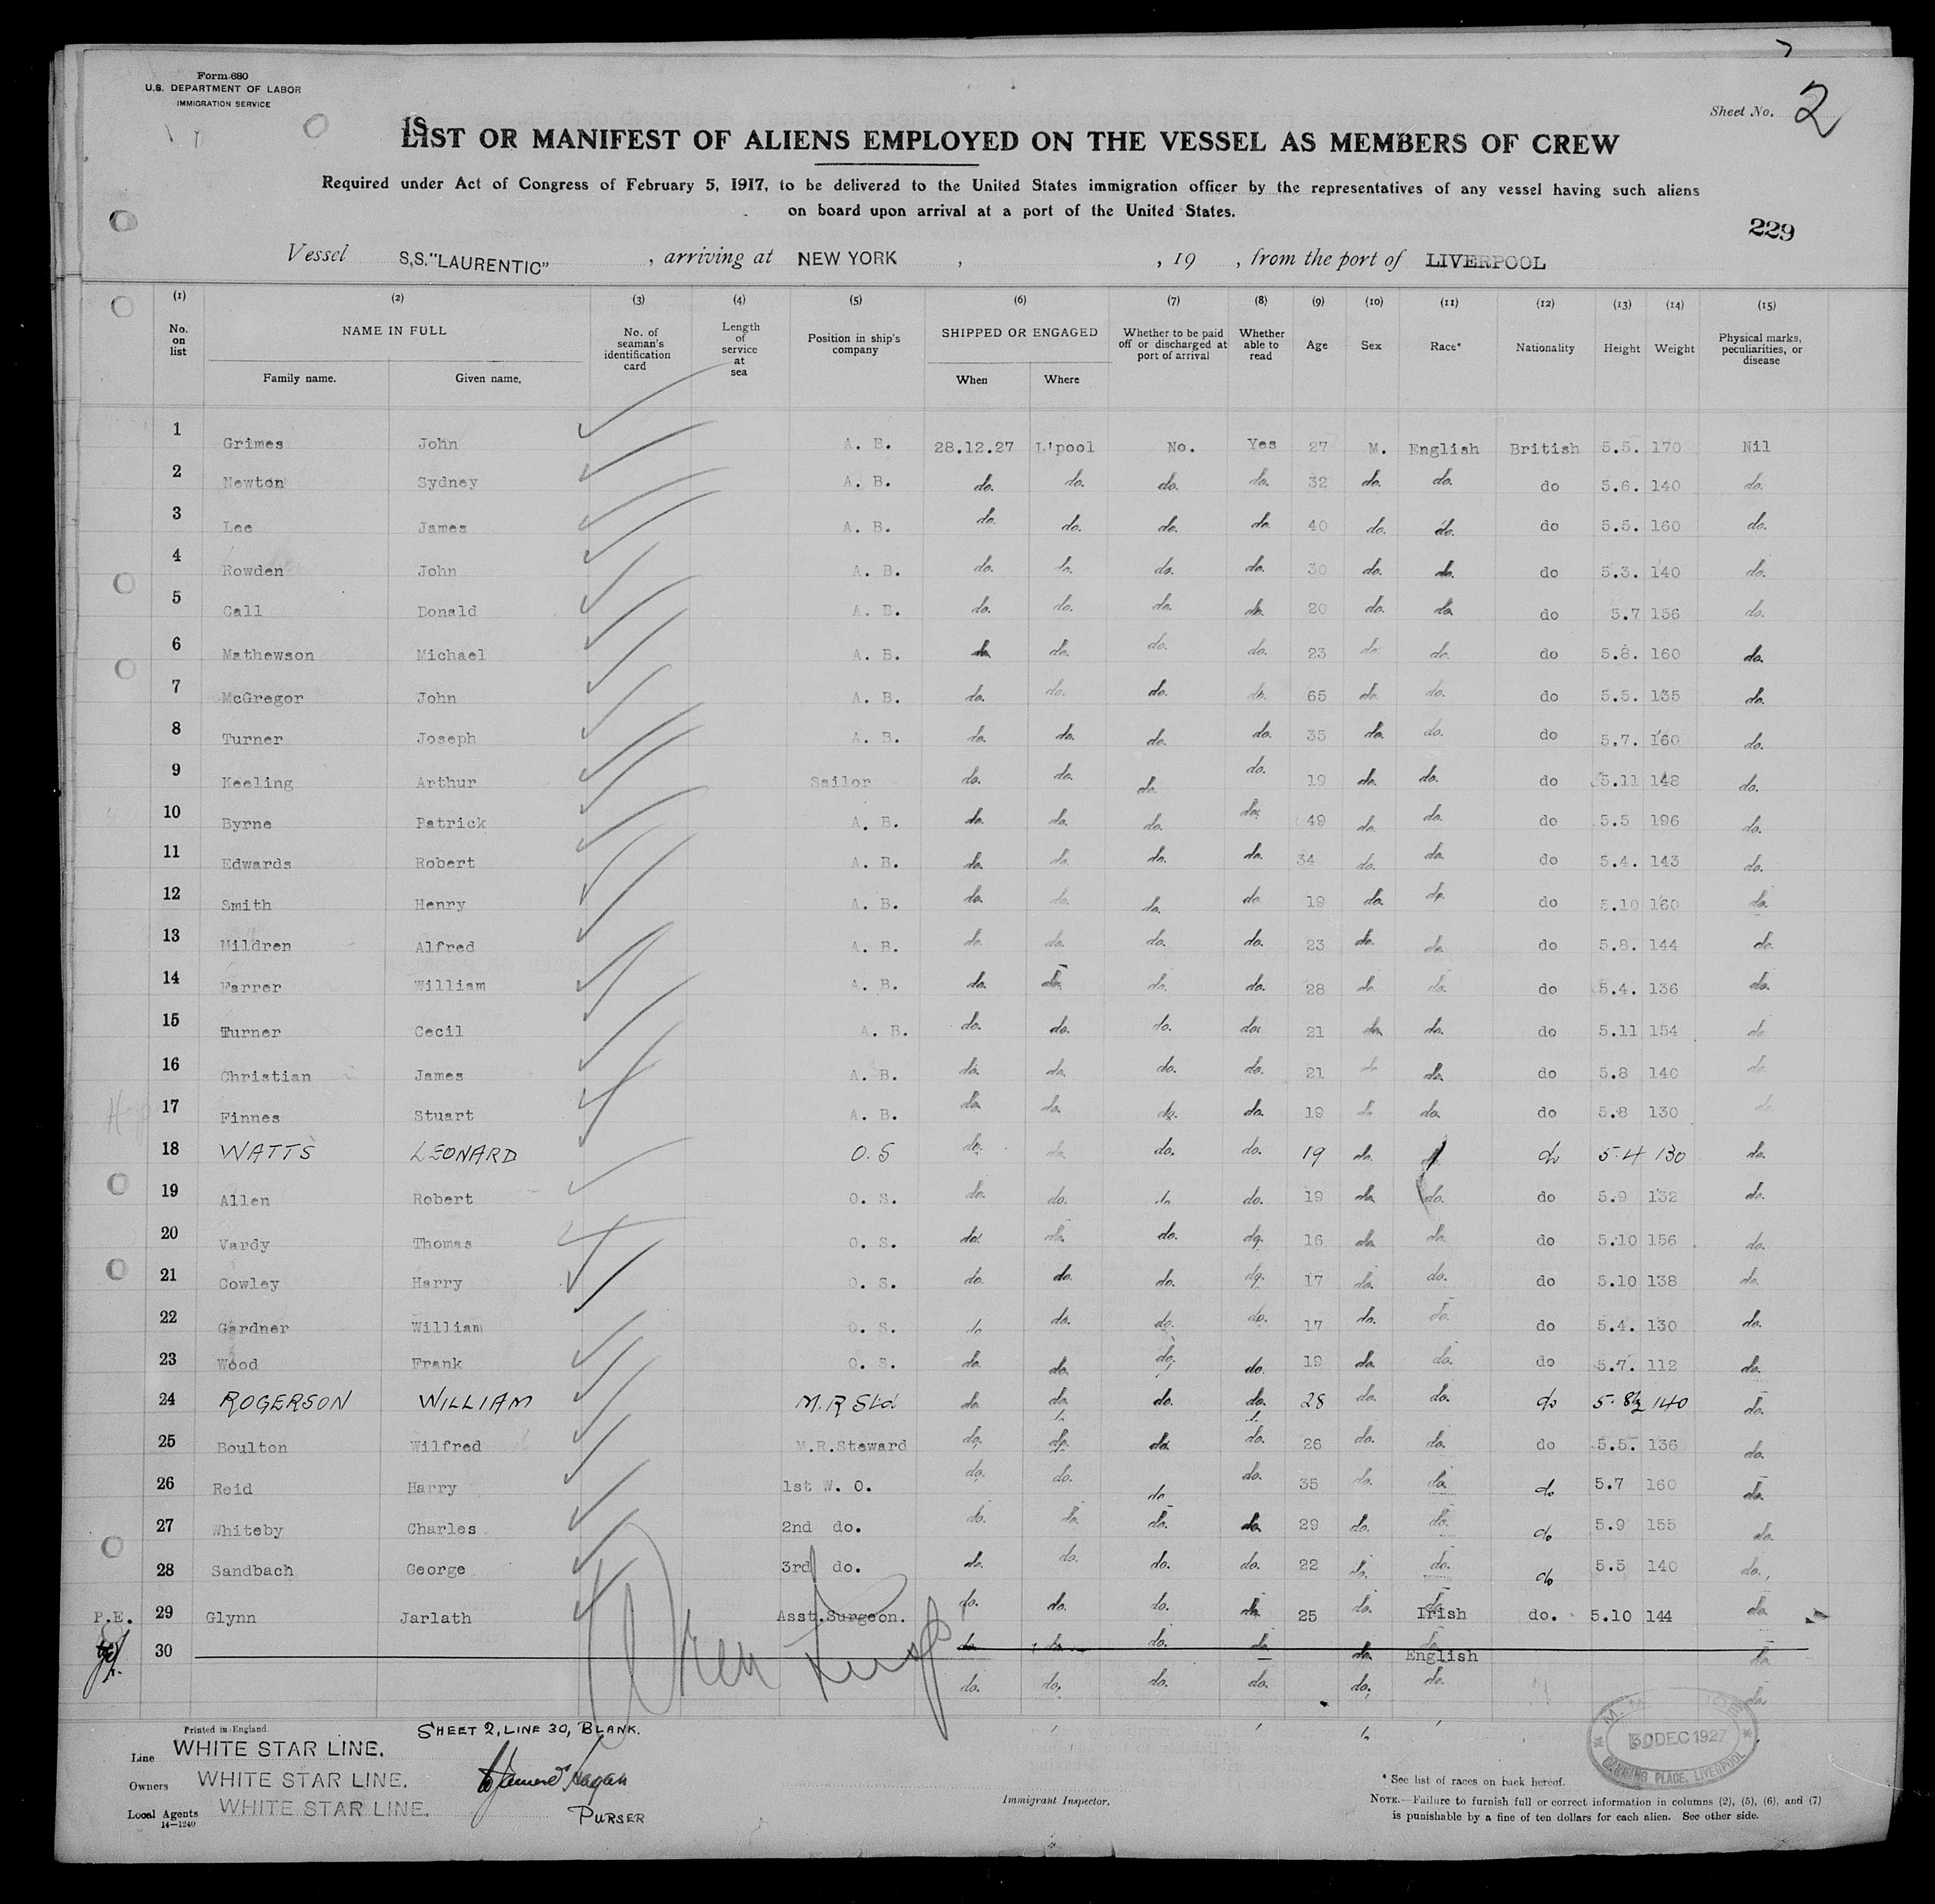 Form 680
U.S. DEPARTMENT OF LABOR
IMMIGRATION SERVICE
Sheet No. 2
LIST OR MANIFEST OF ALIENS EMPLOYED ON THE VESSEL AS MEMBERS OF CREW
Required under Act of Congress of February 5, 1917, to be delivered to the United States immigration officer by the representatives of any vessel having such aliens
on board upon arrival at a port of the United States.
229
Vessel S.S. "LAURENTIC" , arriving at NEW YORK , , 19 , from the port of LIVERPOOL
(1) (2) (3) (4) (5) (6) (7) (8) (9) (10) (11) (12) (13) (14) (15)
No. on list NAME IN FULL No. of seaman's identification card Length of service at sea Position in ship's company SHIPPED OR ENGAGED Whether to be paid off or discharged at port of arrival Whether able to read Age Sex Race* Nationality Height Weight Physical marks, peculiarities, or disease
Family name. Given name. When Where
1 Grimes John A. B. 28.12.27 L'pool No. Yes 27 M. English British 5.5. 170 Nil
2 Newton Sydney A. B. do. do. do. do. 32 do. do. do 5.6. 140 do.
3 Lee James A. B. do. do. do. do. 40 do. do. do 5.5. 160 do.
4 Rowden John A. B. do. do. do. do. 30 do. do. do 5.3. 140 do.
5 Call Donald A. B. do. do. do. do. 20 do. do. do 5.7 156 do.
6 Mathewson Michael A. B. do. do. do. do. 23 do. do. do 5.8. 160 do.
7 McGregor John A. B. do. do. do. do. 65 do. do. do 5.5. 135 do.
8 Turner Joseph A. B. do. do. do. do. 35 do. do. do 5.7. 160 do.
9 Keeling Arthur Sailor do. do. do. do. 19 do. do. do 5.11 148 do.
10 Byrne Patrick A. B. do. do. do. do. 49 do. do. do 5.5 196 do.
11 Edwards Robert A. B. do. do. do. do. 34 do. do. do 5.4. 143 do.
12 Smith Henry A. B. do. do. do. do. 19 do. do. do 5.10 160 do.
13 Mildren Alfred A. B. do. do. do. do. 23 do. do. do 5.8. 144 do.
14 Farrer William A. B. do. do. do. do. 28 do. do. do 5.4. 136 do.
15 Turner Cecil A. B. do. do. do. do. 21 do. do. do 5.11 154 do.
16 Christian James A. B. do. do. do. do. 21 do. do. do 5.8 140 do.
17 Finnes Stuart A. B. do. do. do. do. 19 do. do. do 5.8 130 do.
18 WATTS LEONARD O. S do. do. do. do. 19 do. do. do 5.4 130 do.
19 Allen Robert O. S. do. do. do. do. 19 do. do. do 5.9 132 do.
20 Vardy Thomas O. S. do. do. do. do. 16 do. do. do 5.10 156 do.
21 Cowley Harry O. S. do. do. do. do. 17 do. do. do 5.10 138 do.
22 Gardner William O. S. do. do. do. do. 17 do. do. do 5.4. 130 do.
23 Wood Frank O. S. do. do. do. do. 19 do. do. do 5.7. 112 do.
24 ROGERSON WILLIAM M.R Std do. do. do. do. 28 do. do. do 5.8½ 140 do.
25 Boulton Wilfred M.R.Steward do. do. do. do. 26 do. do. do 5.5. 136 do.
26 Reid Harry 1st W. O. do. do. do. do. 35 do. do. do 5.7 160 do.
27 Whiteby Charles 2nd do. do. do. do. do. 29 do. do. do 5.9 155 do.
28 Sandbach George 3rd do. do. do. do. do. 22 do. do. do 5.5 140 do.
P.E. 29 Glynn Jarlath Asst.Surgeon. do. do. do. do. 25 do. Irish do. 5.10 144 do.
30 do. do. do. do. do. English do.
do. do. do. do. do. do. do.
Printed in England.
SHEET 2, LINE 30, BLANK.
Line WHITE STAR LINE.
Owners WHITE STAR LINE.
Local Agents WHITE STAR LINE.
14—1240
PURSER
Immigrant Inspector.
30 DEC 1927
LIVERPOOL
* See list of races on back hereof.
NOTE.—Failure to furnish full or correct information in columns (2), (5), (6), and (7)
is punishable by a fine of ten dollars for each alien. See other side.